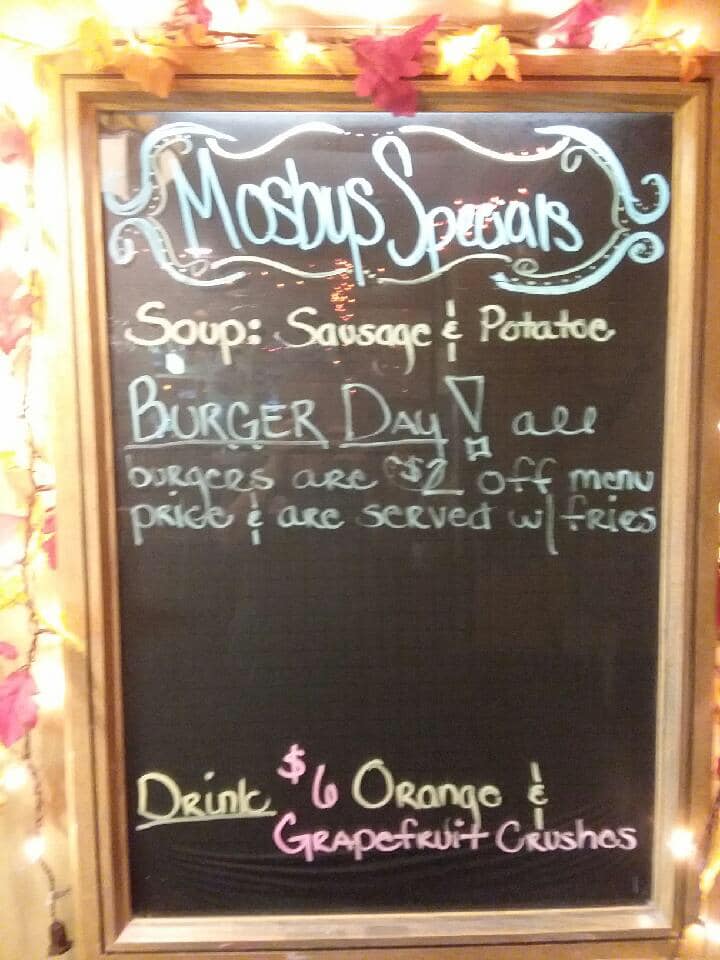 Mosbys Specials
Soup: Sausage & Potatoe
BURGER DAY! all
burgers are $2 off menu
price & are served w/ fries
Drink $6 Orange &
Grapefruit Crushes